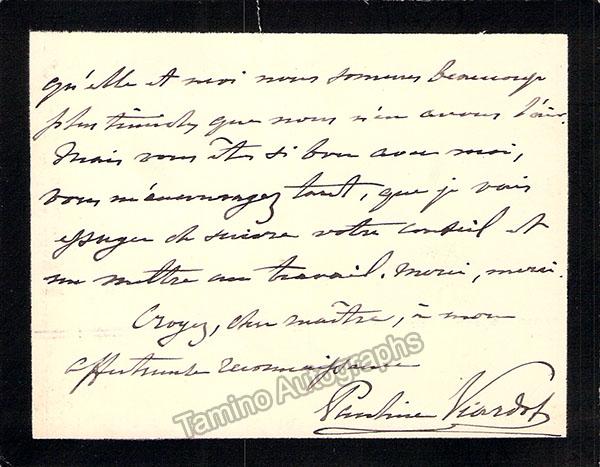 qu'elle et moi nous sommes beaucoup
plus timides que nous n'en avons l'air.
Mais vous êtes si bon avec moi,
vous m'encouragez tant, que je vais
essayer de suivre votre conseil et
me mettre au travail. Merci, merci.
Croyez, cher maître, à mon
affectueuse reconnaissance
Pauline Viardot
Tamino Autographs